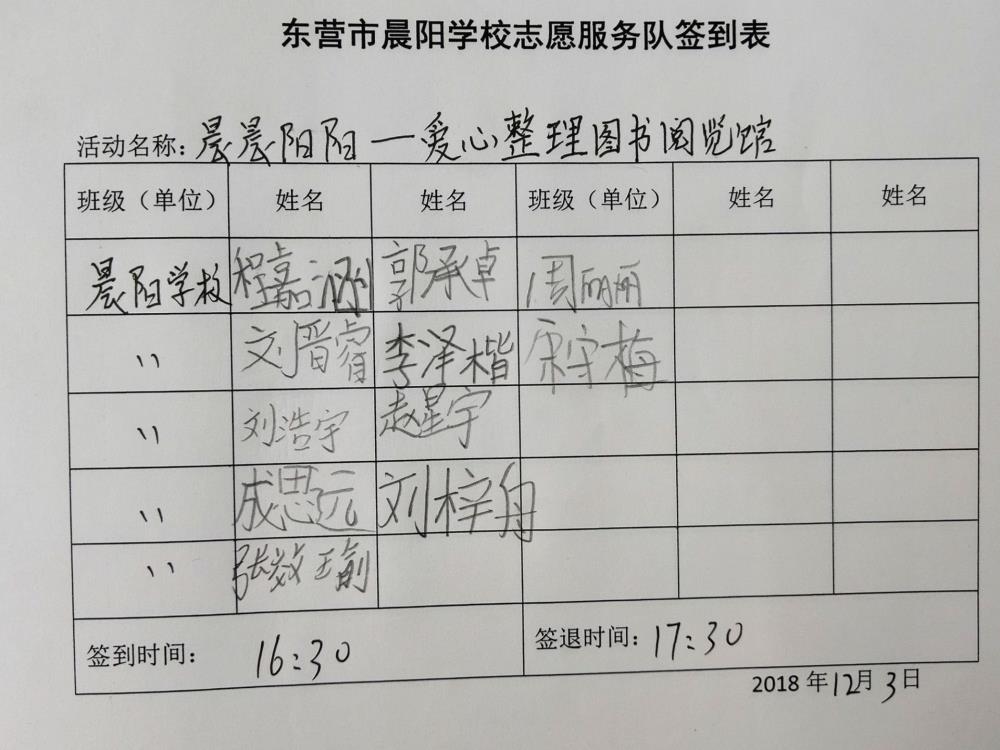 东营市晨阳学校志愿服务队签到表
活动名称：晨晨阳阳一爱心整理图书阅览馆
班级（单位） 姓名 姓名 班级（单位） 姓名 姓名
晨阳学校 程嘉涵 郭承卓 周丽丽
〃 刘晋睿 李泽楷 宋守梅
〃 刘浩宇 赵星宇
〃 成思远 刘梓舟
〃 张数瑜
签到时间：16:30 签退时间：17:30
2018年12月3日